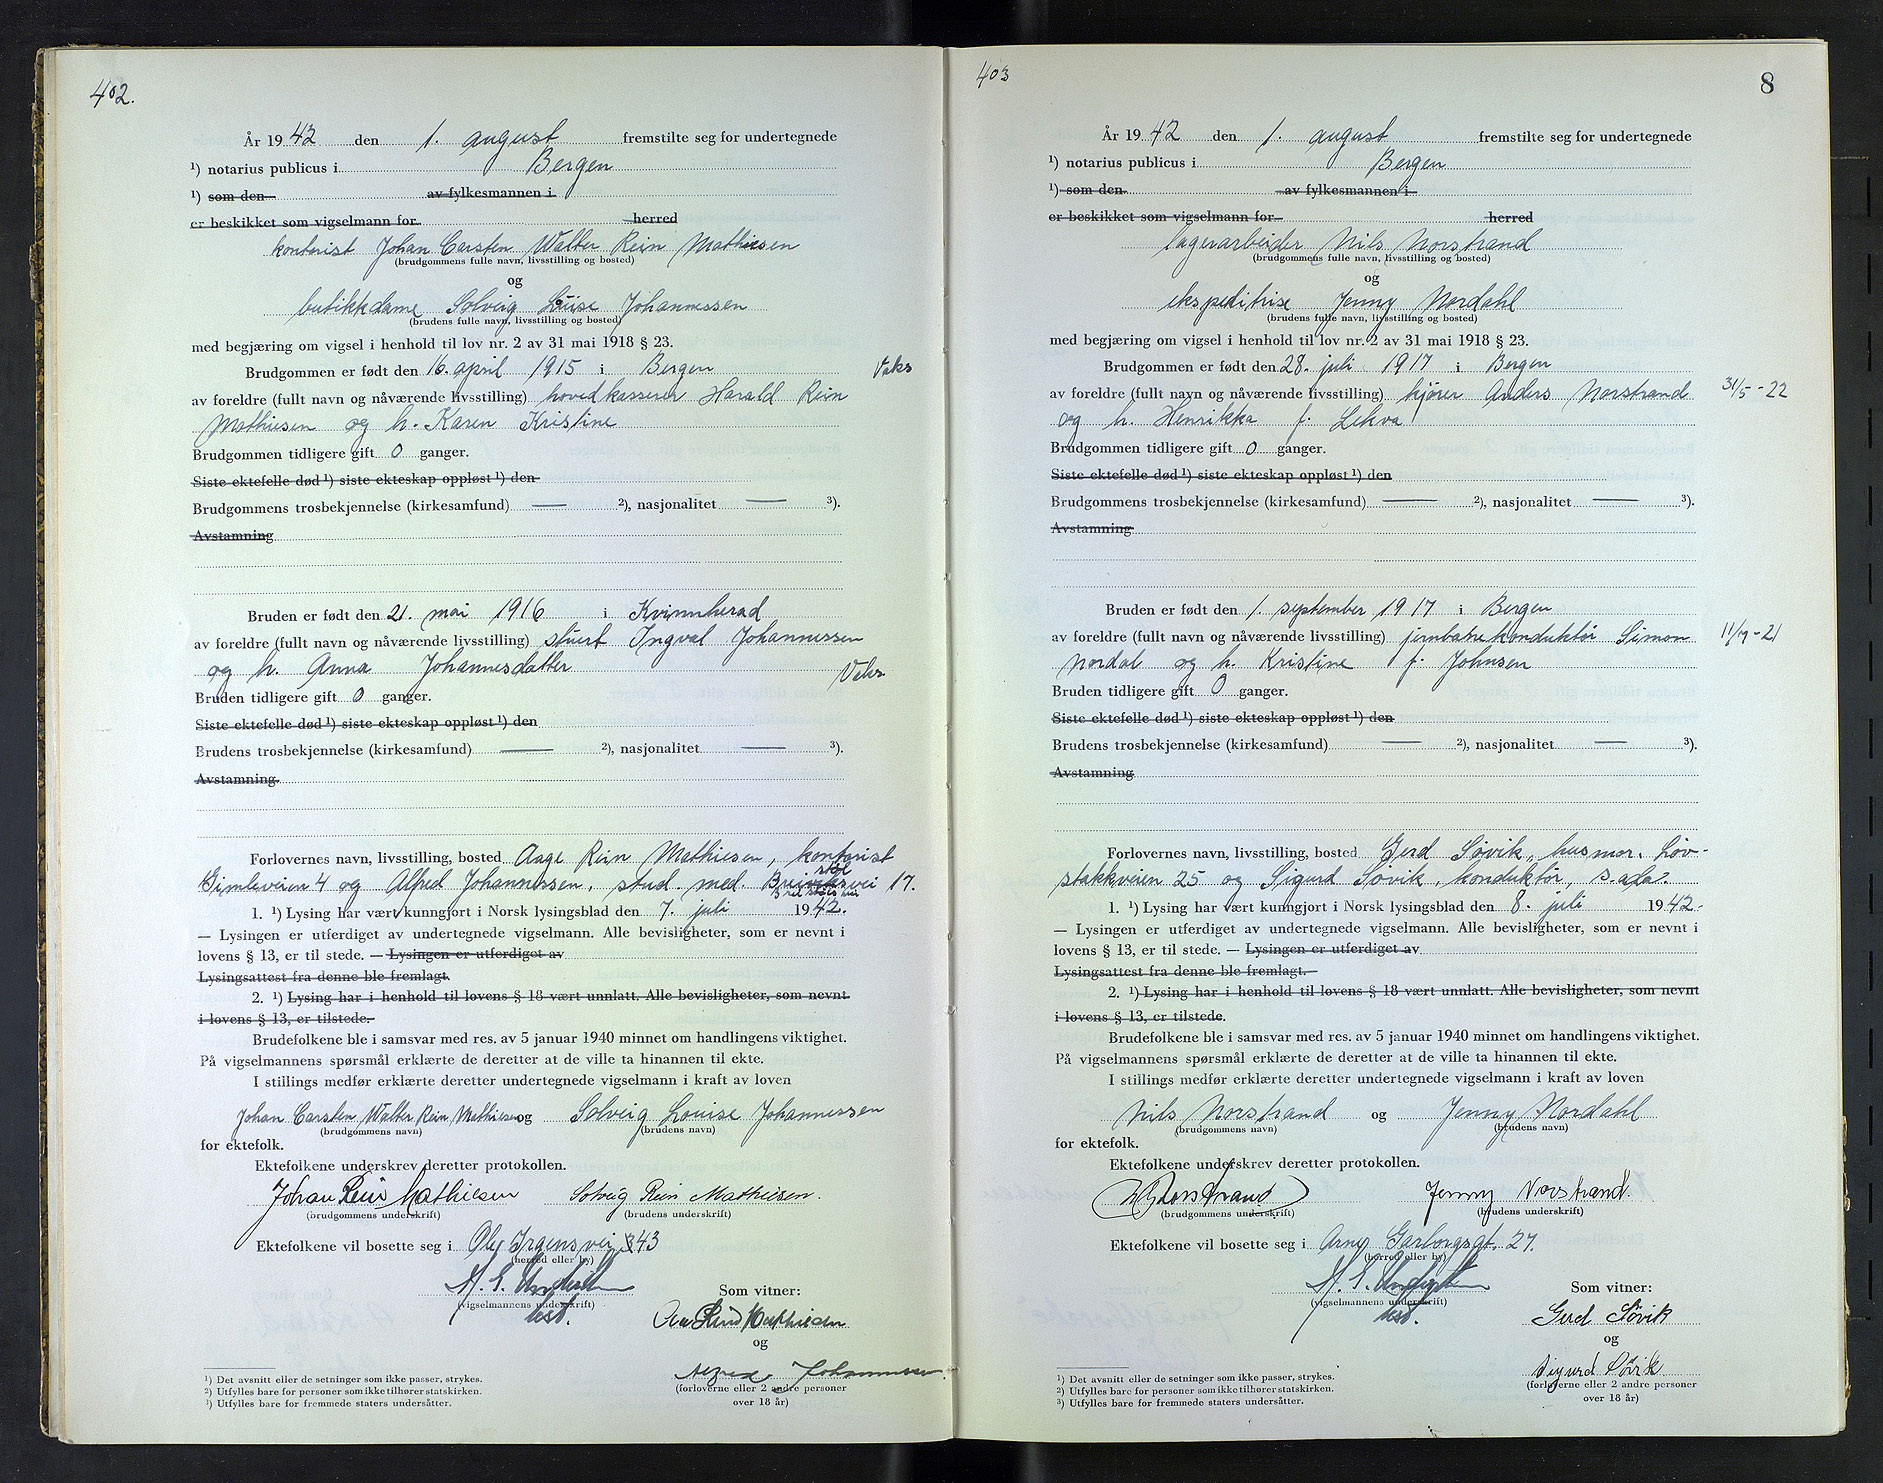 402.
År 1942 den 1. august fremstilte seg for undertegnede
¹) notarius publicus i Bergen
¹) som den av fylkesmannen i
er beskikket som vigselmann for herred
kontorist Johan Carsten Walter Rein Mathiesen
(brudgommens fulle navn, livsstilling og bosted)
og
butikkdame Solveig Louise Johannessen
(brudens fulle navn, livsstilling og bosted)
med begjæring om vigsel i henhold til lov nr. 2 av 31 mai 1918 § 23.
Brudgommen er født den 16. april 1915 i Bergen Vaks
av foreldre (fullt navn og nåværende livsstilling) hovedkasserer Harald Rein
Mathiesen og h. Karen Kristine
Brudgommen tidligere gift 0 ganger.
Siste ektefelle død ¹) siste ekteskap oppløst ¹) den
Brudgommens trosbekjennelse (kirkesamfund) — ²), nasjonalitet — ³).
Avstamning
Bruden er født den 21. mai 1916 i Kvinnherad
av foreldre (fullt navn og nåværende livsstilling) stuert Ingval Johannessen
og h. Anna Johannesdatter Vaks
Bruden tidligere gift 0 ganger.
Siste ektefelle død ¹) siste ekteskap oppløst ¹) den
Brudens trosbekjennelse (kirkesamfund) — ²), nasjonalitet — ³).
Avstamning
Forlovernes navn, livsstilling, bosted Aage Rein Mathiesen, kontorist
Gimleveien 4 og Alfred Johannessen, stud. med. 17.
1. ¹) Lysing har vært kunngjort i Norsk lysingsblad den 7. juli 1942.
— Lysingen er utferdiget av undertegnede vigselmann. Alle bevisligheter, som er nevnt i
lovens § 13, er til stede. — Lysingen er utferdiget av
Lysingsattest fra denne ble fremlagt.
2. ¹) Lysing har i henhold til lovens § 18 vært unnlatt. Alle bevisligheter, som nevnt
i lovens § 13, er tilstede.
Brudefolkene ble i samsvar med res. av 5 januar 1940 minnet om handlingens viktighet.
På vigselmannens spørsmål erklærte de deretter at de ville ta hinannen til ekte.
I stillings medfør erklærte deretter undertegnede vigselmann i kraft av loven
Johan Carsten Walter Rein Mathiesen og Solveig Louise Johannessen
(brudgommens navn) (brudens navn)
for ektefolk.
Ektefolkene underskrev deretter protokollen.
Johan Rein Mathiesen Solveig Rein Mathiesen.
(brudgommens underskrift) (brudens underskrift)
Ektefolkene vil bosette seg i Ole Irgensvei 43
(herred eller by)
(vigselmannens underskrift)
Som vitner:
Mathiesen
og
Alfred Johannessen.
(forloverne eller 2 andre personer
over 18 år)
¹) Det avsnitt eller de setninger som ikke passer, strykes.
²) Utfylles bare for personer som ikke tilhører statskirken.
³) Utfylles bare for fremmede staters undersåtter.
403
8
År 1942 den 1. august fremstilte seg for undertegnede
¹) notarius publicus i Bergen
¹) som den av fylkesmannen i
er beskikket som vigselmann for herred
lagerarbeider Nils Norstrand
(brudgommens fulle navn, livsstilling og bosted)
og
ekspeditrise Jenny Nordahl
(brudens fulle navn, livsstilling og bosted)
med begjæring om vigsel i henhold til lov nr. 2 av 31 mai 1918 § 23.
Brudgommen er født den 28. juli 1917 i Bergen
av foreldre (fullt navn og nåværende livsstilling) kjører Anders Norstrand 31/5-22
og h. Henrikka f. Lekva
Brudgommen tidligere gift 0 ganger.
Siste ektefelle død ¹) siste ekteskap oppløst ¹) den
Brudgommens trosbekjennelse (kirkesamfund) — ²), nasjonalitet — ³).
Avstamning
Bruden er født den 1. september 1917 i Bergen
av foreldre (fullt navn og nåværende livsstilling) jernbanekonduktør Simon
Nordal og h. Kristine f. Johnsen
Bruden tidligere gift 0 ganger.
Siste ektefelle død ¹) siste ekteskap oppløst ¹) den
Brudens trosbekjennelse (kirkesamfund) — ²), nasjonalitet — ³).
Avstamning
Forlovernes navn, livsstilling, bosted Gerd Søvik, husmor, Løv-
stakkveien 25 og Sigurd Søvik, konduktør, s. ada.
1. ¹) Lysing har vært kunngjort i Norsk lysingsblad den 8. juli 1942.
— Lysingen er utferdiget av undertegnede vigselmann. Alle bevisligheter, som er nevnt i
lovens § 13, er til stede. — Lysingen er utferdiget av
Lysingsattest fra denne ble fremlagt. —
2. ¹) Lysing har i henhold til lovens § 18 vært unnlatt. Alle bevisligheter, som nevnt
i lovens § 13, er tilstede.
Brudefolkene ble i samsvar med res. av 5 januar 1940 minnet om handlingens viktighet.
På vigselmannens spørsmål erklærte de deretter at de ville ta hinannen til ekte.
I stillings medfør erklærte deretter undertegnede vigselmann i kraft av loven
Nils Norstrand og Jenny Nordahl
(brudgommens navn) (brudens navn)
for ektefolk.
Ektefolkene underskrev deretter protokollen.
N. Norstrand Jenny Norstrand.
(brudgommens underskrift) (brudens underskrift)
Ektefolkene vil bosette seg i Arne Garborgsgt. 27.
(herred eller by)
(vigselmannens underskrift)
Som vitner:
Gerd Søvik
og
Sigurd Søvik
(forloverne eller 2 andre personer
over 18 år)
¹) Det avsnitt eller de setninger som ikke passer, strykes.
²) Utfylles bare for personer som ikke tilhører statskirken.
³) Utfylles bare for fremmede staters undersåtter.